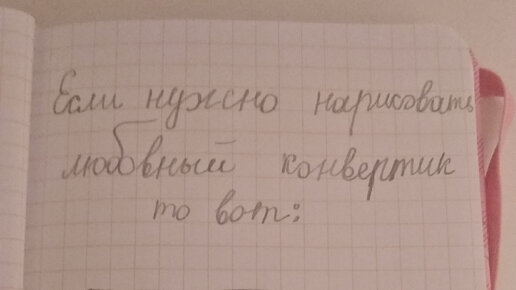 Если нужно нарисовать
любовный конвертик
то вот: